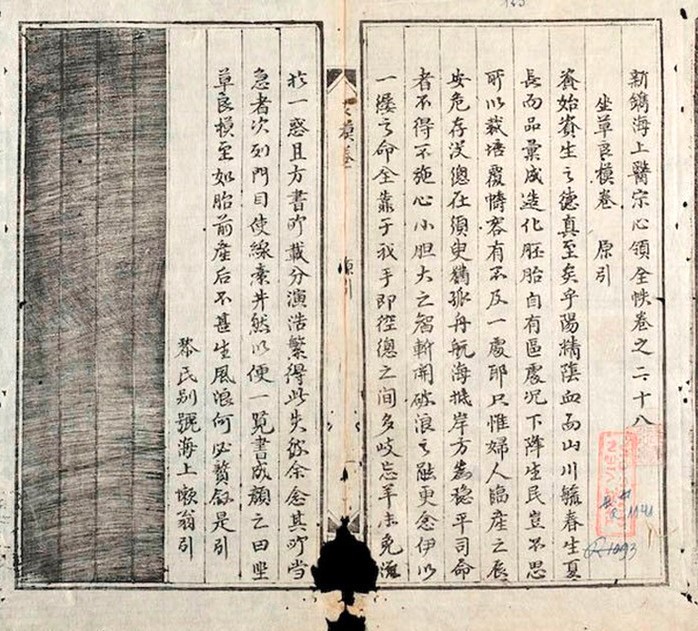 新鐫海上醫宗心領全帙卷之二十八
坐草良模卷 原引
資始資生之德真至矣乎陽精陰血而山川毓春生夏
長而品彙成造化胚胎自有區處况下降生民豈不思
所以裁培覆幬容有不及一處耶只惟婦人臨產之辰
安危存没總在須臾猶孤舟航海抵岸方為穩平司命
者不得不施心小胆大之智斬開破浪之更念伊以
一縷之命全靠于我手即徑總之間多岐忘羊未免
於一惑且方書所載分演浩繁得此失彼余念其所當
急者次列門目使線索井然以便一覧書成顏之曰坐
草良模至如胎前産后不甚生風浪何必贅敘是引
黎氏别號海上懶翁引
模卷 引
1141
R1093